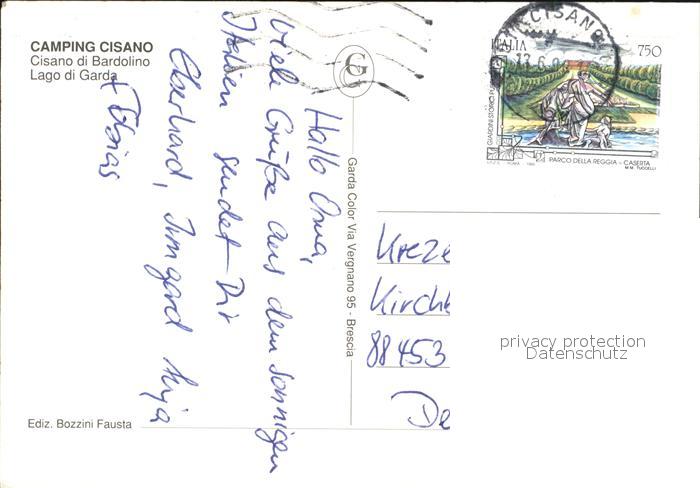 CAMPING CISANO
Cisano di Bardolino
Lago di Garda
Hallo Oma,
Viele Grüße aus dem sonnigen
Italien sendet Dir
Eberhard, Irmgard Anja
+ Tobias
Garda Color Via Vergnano 95 - Brescia
Ediz. Bozzini Fausta
CISANO
ITALIA
750
GIARDINI STORICI PU
PARCO DELLA REGGIA - CASERTA
M.M. TUCCELLI
I.P.Z.S. ROMA
Kreze
Kirchb
88453
De
privacy protection
Datenschutz